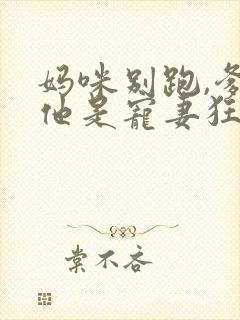 妈咪别跑,爹
他是宠妻狂
棠不吝